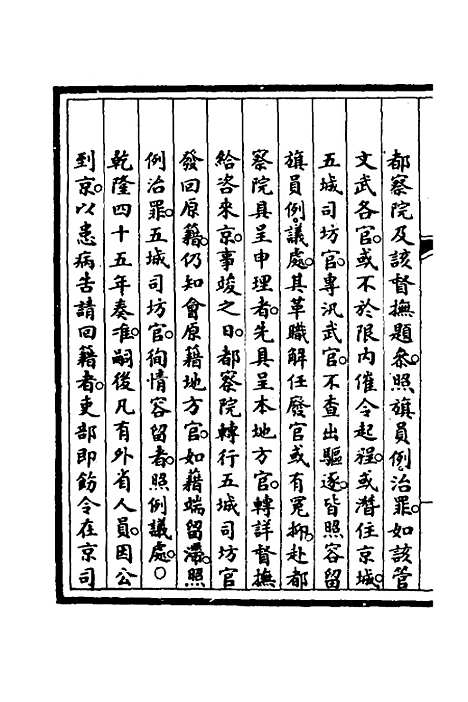 都察院及該督撫題參。照旗員例治罪。如該管
文武各官。或不於限内催令起程。或潛住京城。
五城司坊官。專汛武官。不查出驅逐。皆照容留
旗員例。議處。其革職解任廢官或有冤抑。赴都
察院具呈申理者。先具呈本地方官。轉詳督撫
給咨來京。事竣之日。都察院轉行五城司坊官
發回原籍。仍知會原籍地方官。如藉端留滯。照
例治罪。五城司坊官。徇情容留者。照例議處。〇
乾隆四十五年奏准。嗣後凡有外省人員。因公
到京。以患病告請回籍者。吏部即飭令在京司